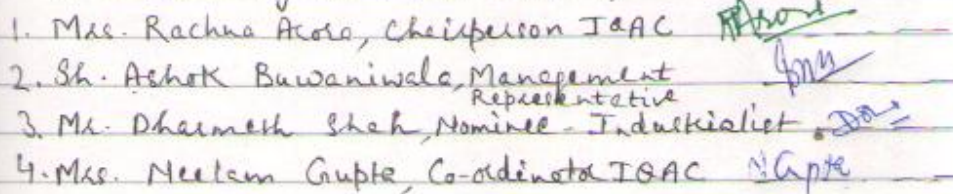 1. Mrs. Rachna Arora, Chairperson IQAC
2. Sh. Ashok Buwaniwala, Management
Representative
3. Mr. Dharmesh Shah, Nominee - Industrialist.
4. Mrs. Neelam Gupta, Co-ordinator IQAC N Gupta